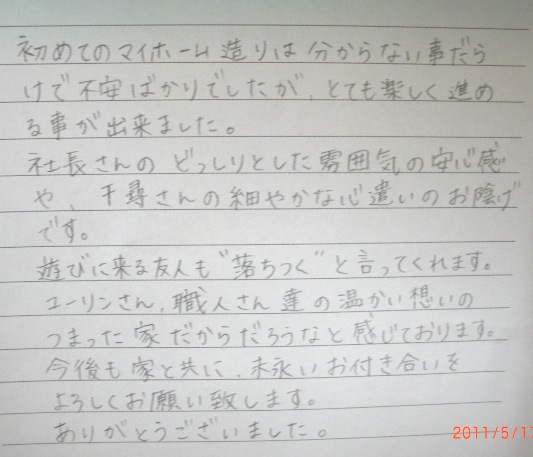 初めてのマイホーム造りは分からない事だら
けで不安ばかりでしたが、とても楽しく進め
る事が出来ました。
社長さんのどっしりとした雰囲気の安心感
や、千尋さんの細やかな心遣いのお陰げ
です。
遊びに来る友人も"落ちつく"と言ってくれます。
ユーリンさん、職人さん達の温かい想いの
つまった家だからだろうなと感じております。
今後も家と共に、末永いお付き合いを
よろしくお願い致します。
ありがとうございました。
2011/5/17